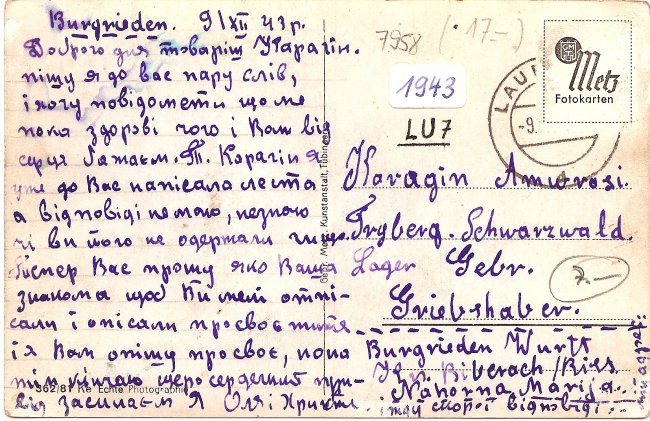 Burgrieden. 9/XII 43 р.
Доброго дня товариш Карагін.
пішу я до вас пару слів,
і хочу повідомети що ме
пока здорові чого і Вам від
серця бажаєм. Т. Карагін я
уже до Вас написала листа
а відповіді немаю, незнаю
чі ви його не одержали
Тіпер Вас прошу яко Ваша
знакома щоб Ви мені отпі-
сали і описали просвоє
і я Вам опішу просвоє, пока
щеро сердечний при-
віт засилаєм Я Оля і
7958 (• 17.-)
1943
LU7
GMT
Metz
Fotokarten
LAUP
-9.
Karagin Amwrosi.
Tryberg. Schwarzwald.
Lager Gebr.
Griebshaber.
7.-
Burgrieden Württ
Kr. Biberach/Riss
Nahorna Marija.
жду скорої відповіді.
мій адрес:
Gebr. Metz, Kunstanstalt, Tübingen
362/81 Ke Echte Photographie